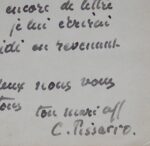 encore de lettre
je lui écrirai
midi en revenant
deux nous vous
tous ton mari aff
C. Pissarro.